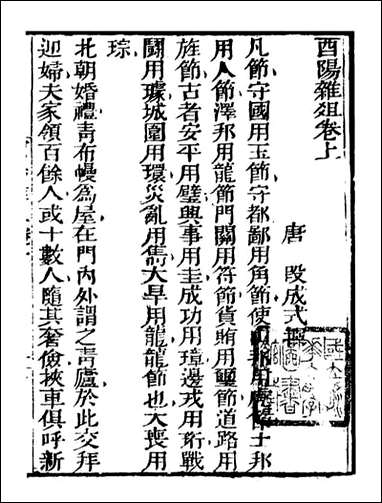 酉陽雜俎卷上
唐 段成式撰
凡節守國用玉節守都鄙用角節使山邦用虎節土邦
用人節澤邦用龍節門關用符節貨賄用璽節道路用
旌節古者安平用璧興事用圭成功用璋邊戎用珩戰
鬭用璩城圍用環災亂用雋大旱用龍龍節也大喪用
琮
北朝婚禮青布幔為屋在門內外謂之青廬於此交拜
迎婦夫家領百餘人或十數人隨其奢儉挾車俱呼新